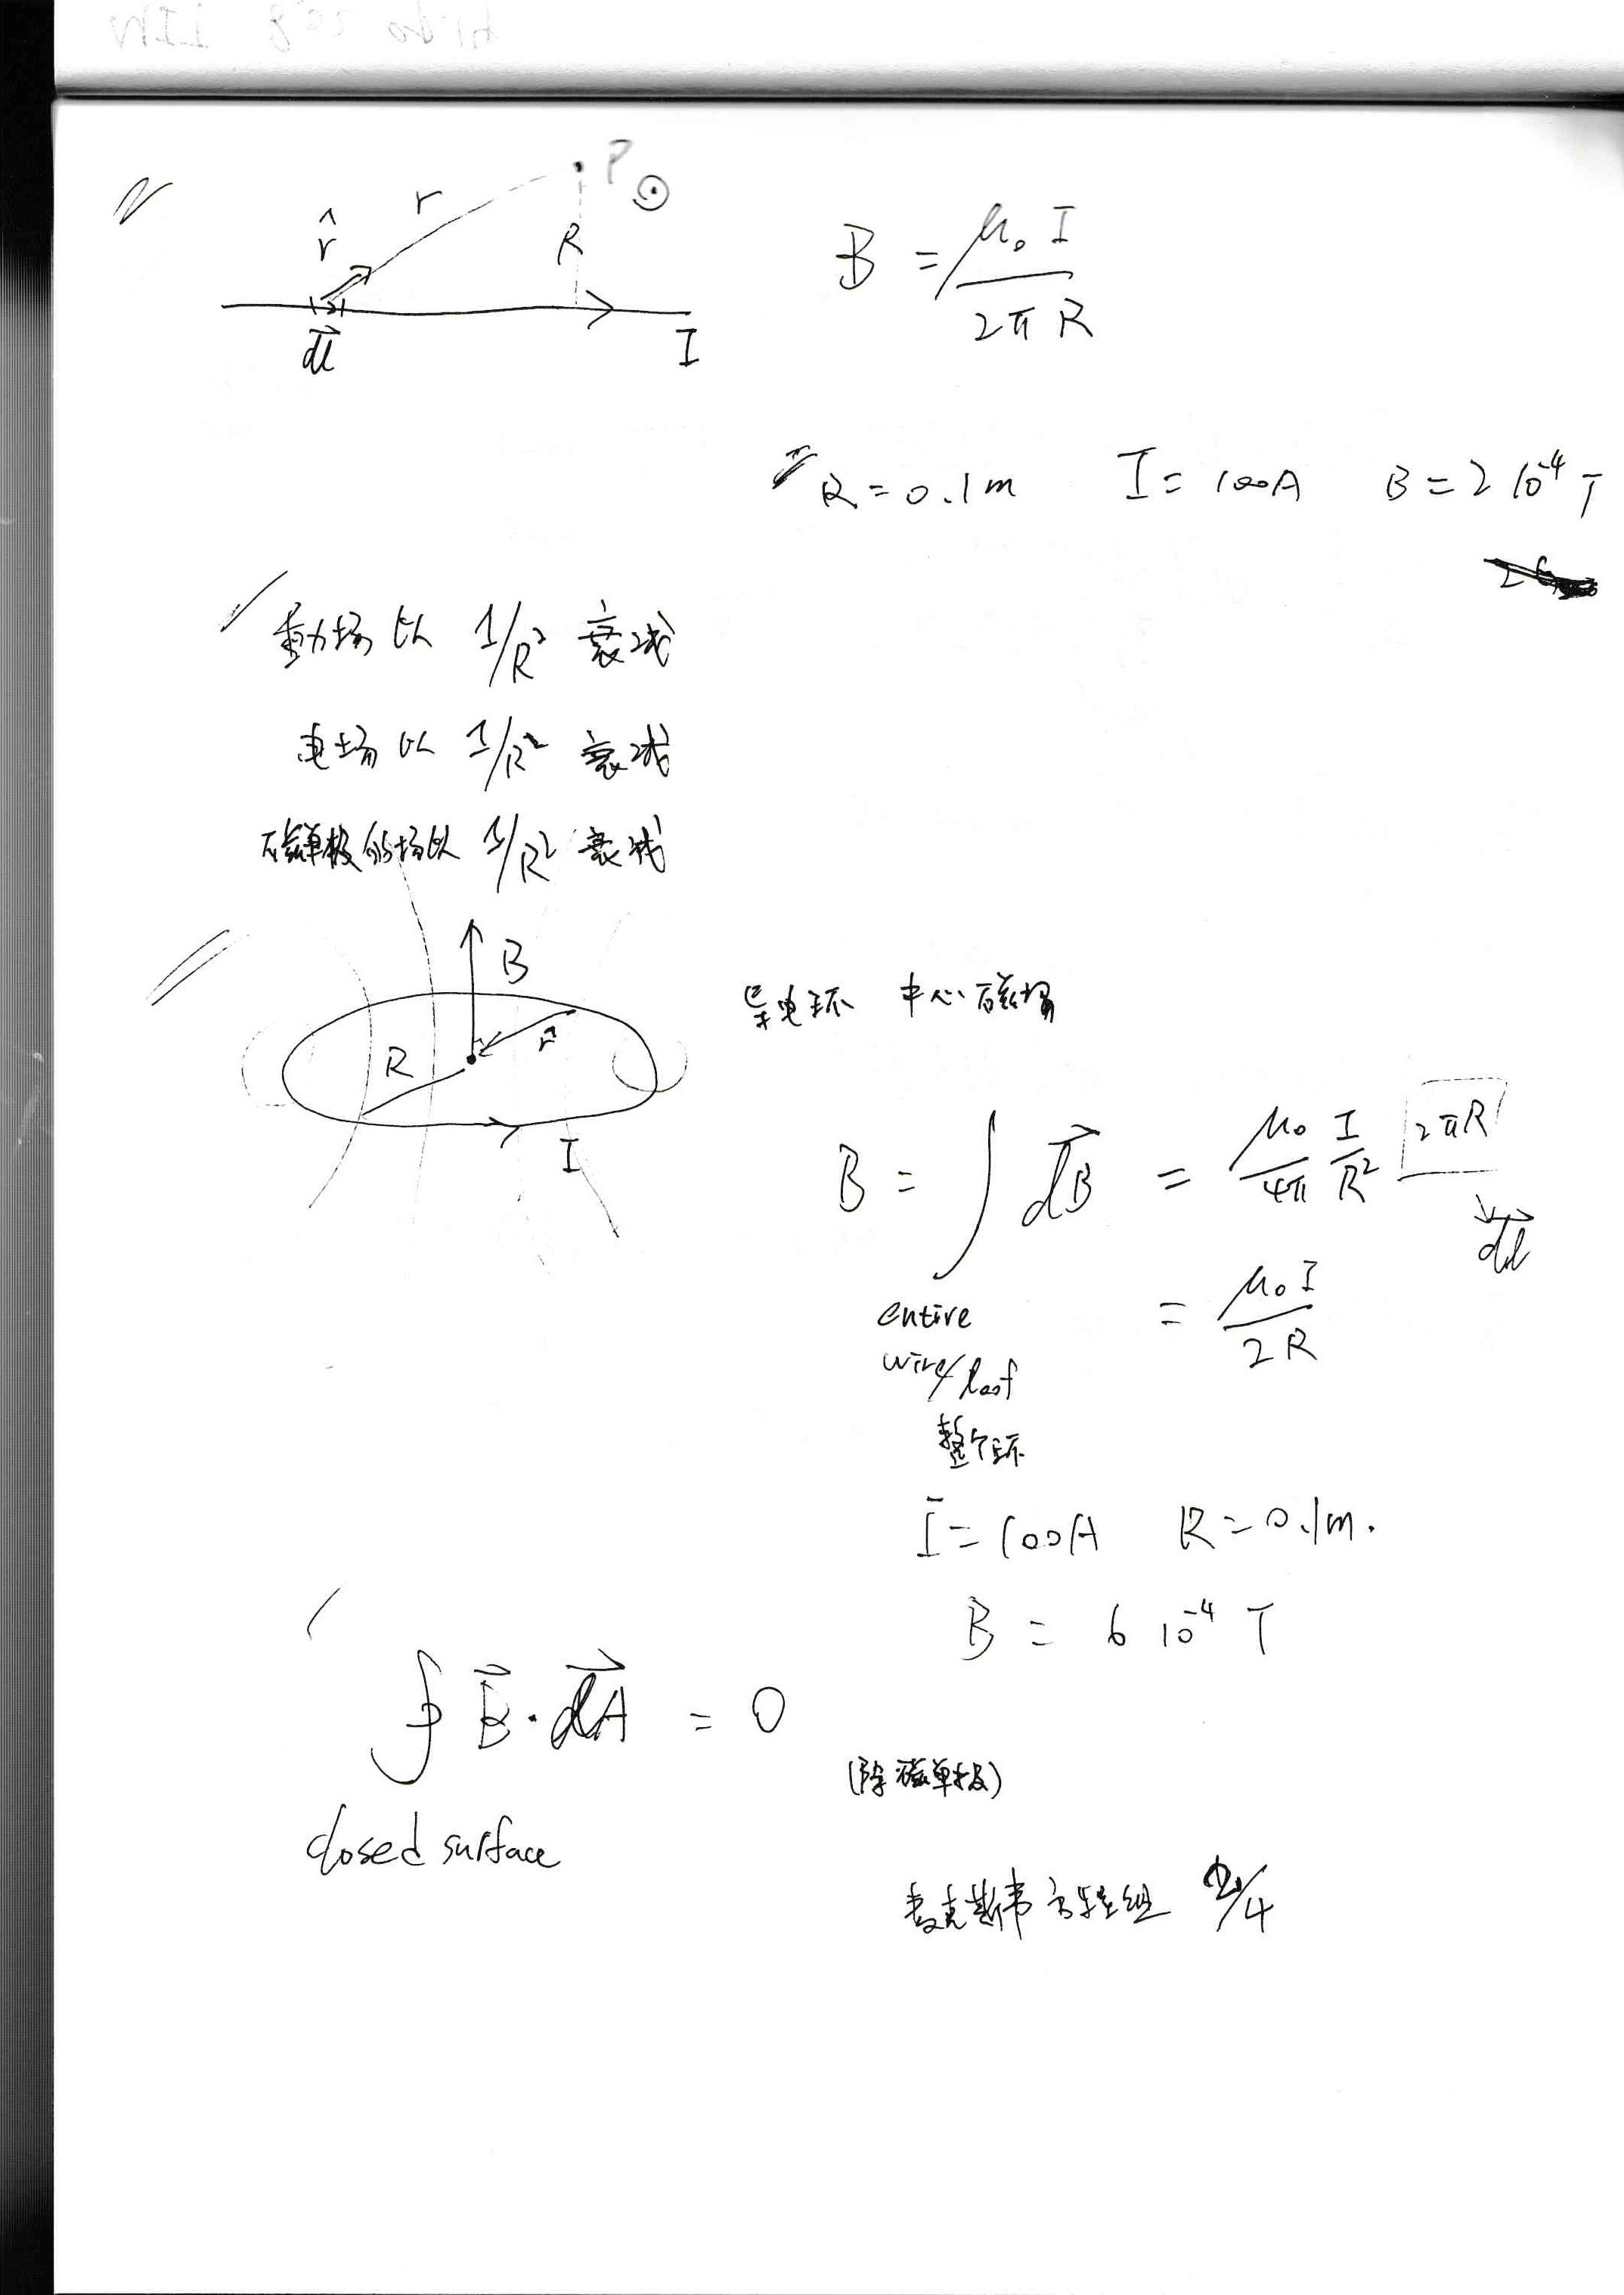 P
r
r̂
R
dl
I
B = μ₀ I / 2π R
R = 0.1 m  I = 100A  B = 2 10⁻⁴ T
場以 1/R² 衰减
电场以 1/R² 衰减
磁单极的场以 1/R² 衰减
B
R
r̂
I
导电环 中心磁场
B = ∫ dB = μ₀/4π I/R² 2πR
dl
entire
wire/loof
整个环
= μ₀ I / 2R
I = 100A  R = 0.1m.
B = 6 10⁻⁴ T
∮ B · dA = 0
(除磁单极)
closed surface
麦克斯韦方程组 2/4